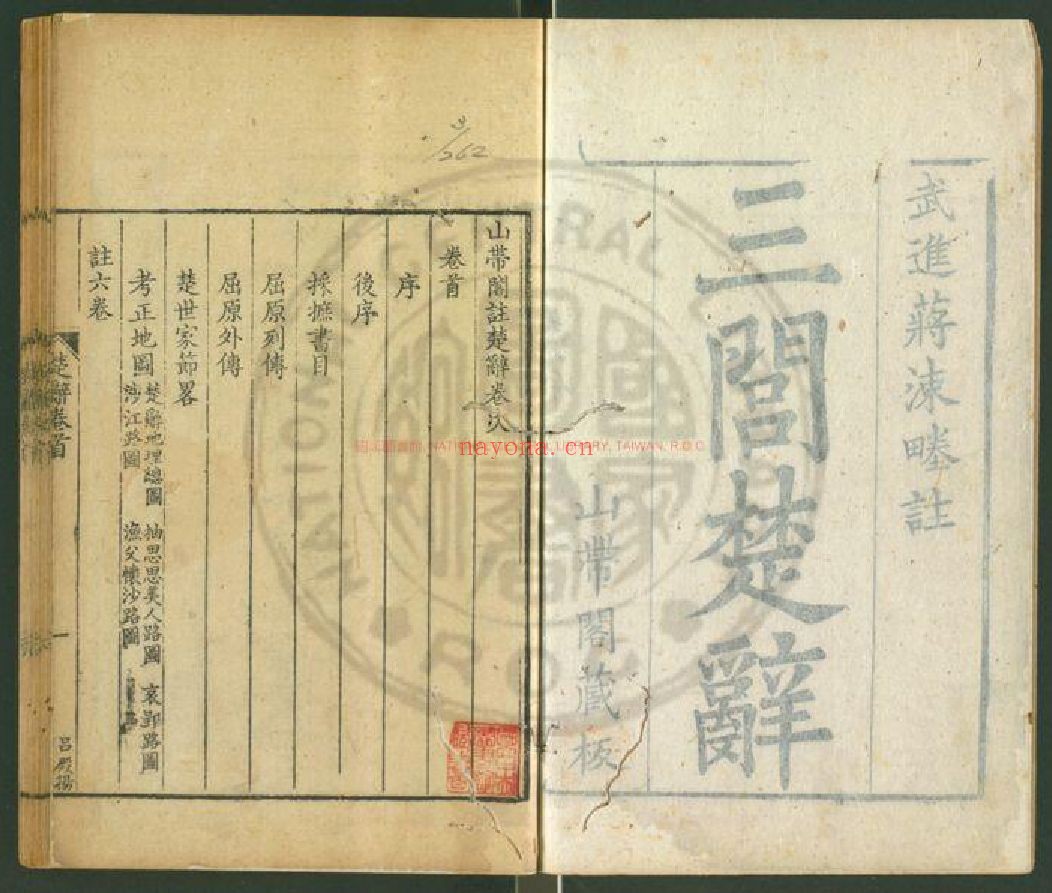 武進蔣涑畻註
三閭楚辭
山帶閣藏板
山帶閣註楚辭卷次
卷首
序
後序
採摭書目
屈原列傳
屈原外傳
楚世家節畧
考正地圖
楚辭地理總圖 抽思思美人路圖 哀郢路圖
涉江路圖 漁父懷沙路圖
註六卷
楚辭卷首
一
呂殿揚
3/262
NATIONAL CENTRAL LIBRARY, TAIWAN, R.O.C
nayona.cn